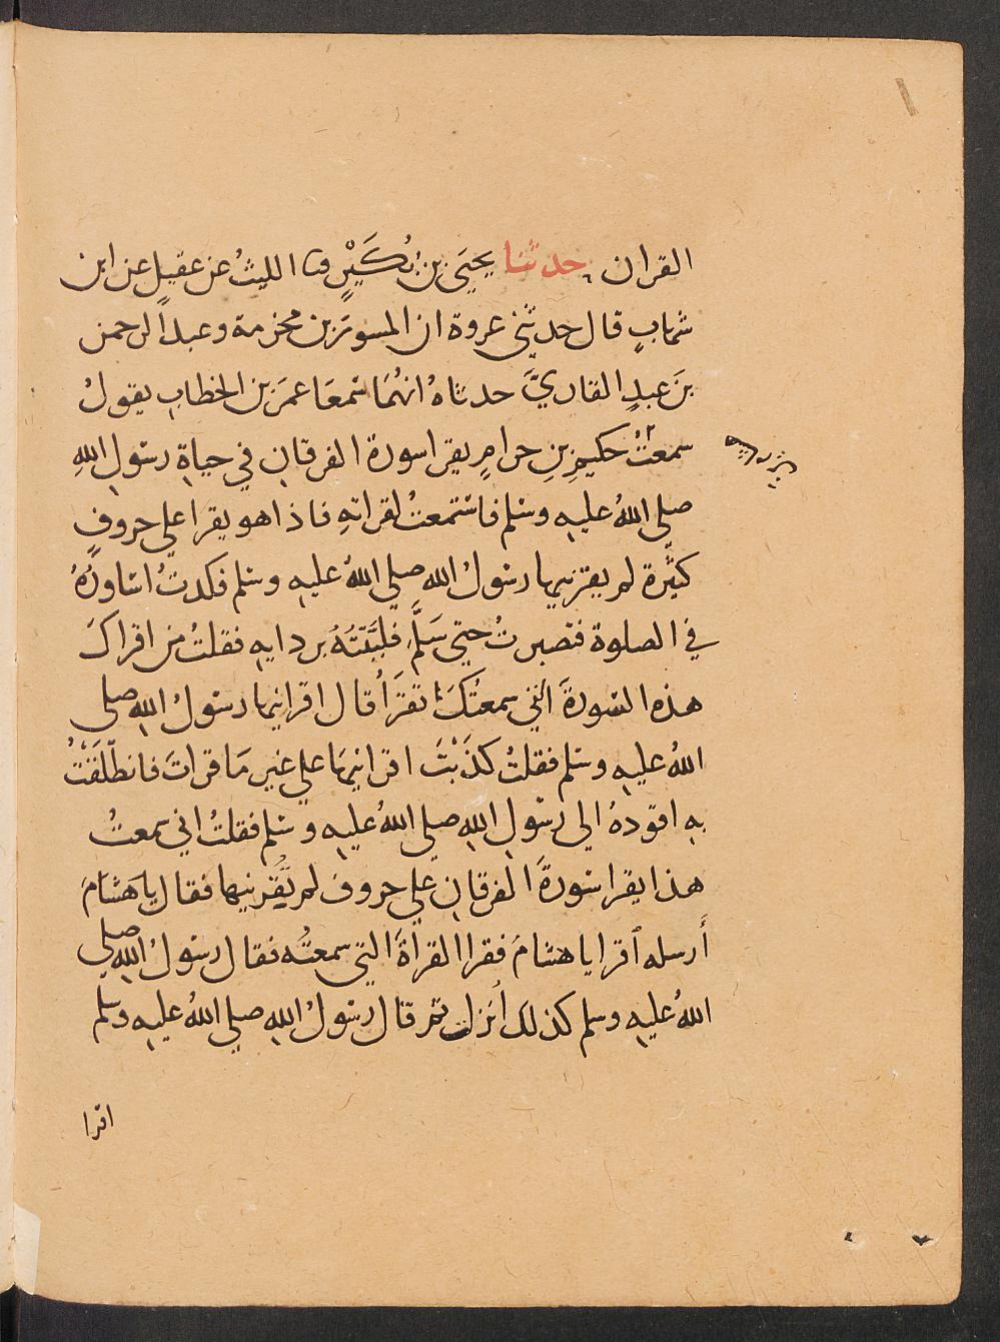 القران حدثنا يحيَى بن بُكَيْرٍ ثنا الليثُ عن عقيل عن ابن
شهابٍ قال حدثني عروة ان المسوَرَ بن مخرمة وعبدَ الرحمن
بنَ عبدٍ القاريَّ حدثاهُ انهُمَا سَمعَا عمرَ بن الخطابِ يقولُ
سمعتُ حكيمِ بنِ حرامٍ يقرا سورة الفرقانِ في حياةِ رسولِ اللهِ
صلى اللهُ عليهِ وسلم فاستمعتُ لقراتهِ فاذا هو يقرا على حروفٍ
كثيرة لم يقرنيها رسولُ الله صلى اللهُ عليهِ وسلم فكدتُ اساورُهُ
في الصلوة فتصبرتُ حتى سَلَّمَ فلبَّبْتُهُ بردايهِ فقلتُ من اقراكَ
هذه السورةَ التي سمعتُكَ تقرَأُ قال اقرانيها رسولُ اللهِ صلى
اللهُ عليهِ وسلم فقلتُ كذَبْتَ اقرانيهَا على غير مَا قراتَ فانطلَقْتُ
بهِ اقودهُ الى رسولِ اللهِ صلى اللهُ عليهِ وسلم فقلتُ اني سمعتُ
هذا يقرا سورةَ الفرقانِ على حروف لم تُقرنيها فقال ياهشامَ
أرسله اقرا ياهشامَ فقرا القراةَ التي سمعتُه فقال رسولُ اللهِ صلى
اللهُ عليهِ وسلم كذلك أُنزل ثم قال رسولُ اللهِ صلى اللهُ عليهِ وسلم
اقرا